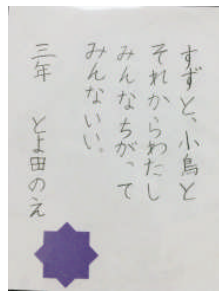 すずと、小鳥と
それからわたし
みんなちがって
みんないい。
三年　とよ田のえ